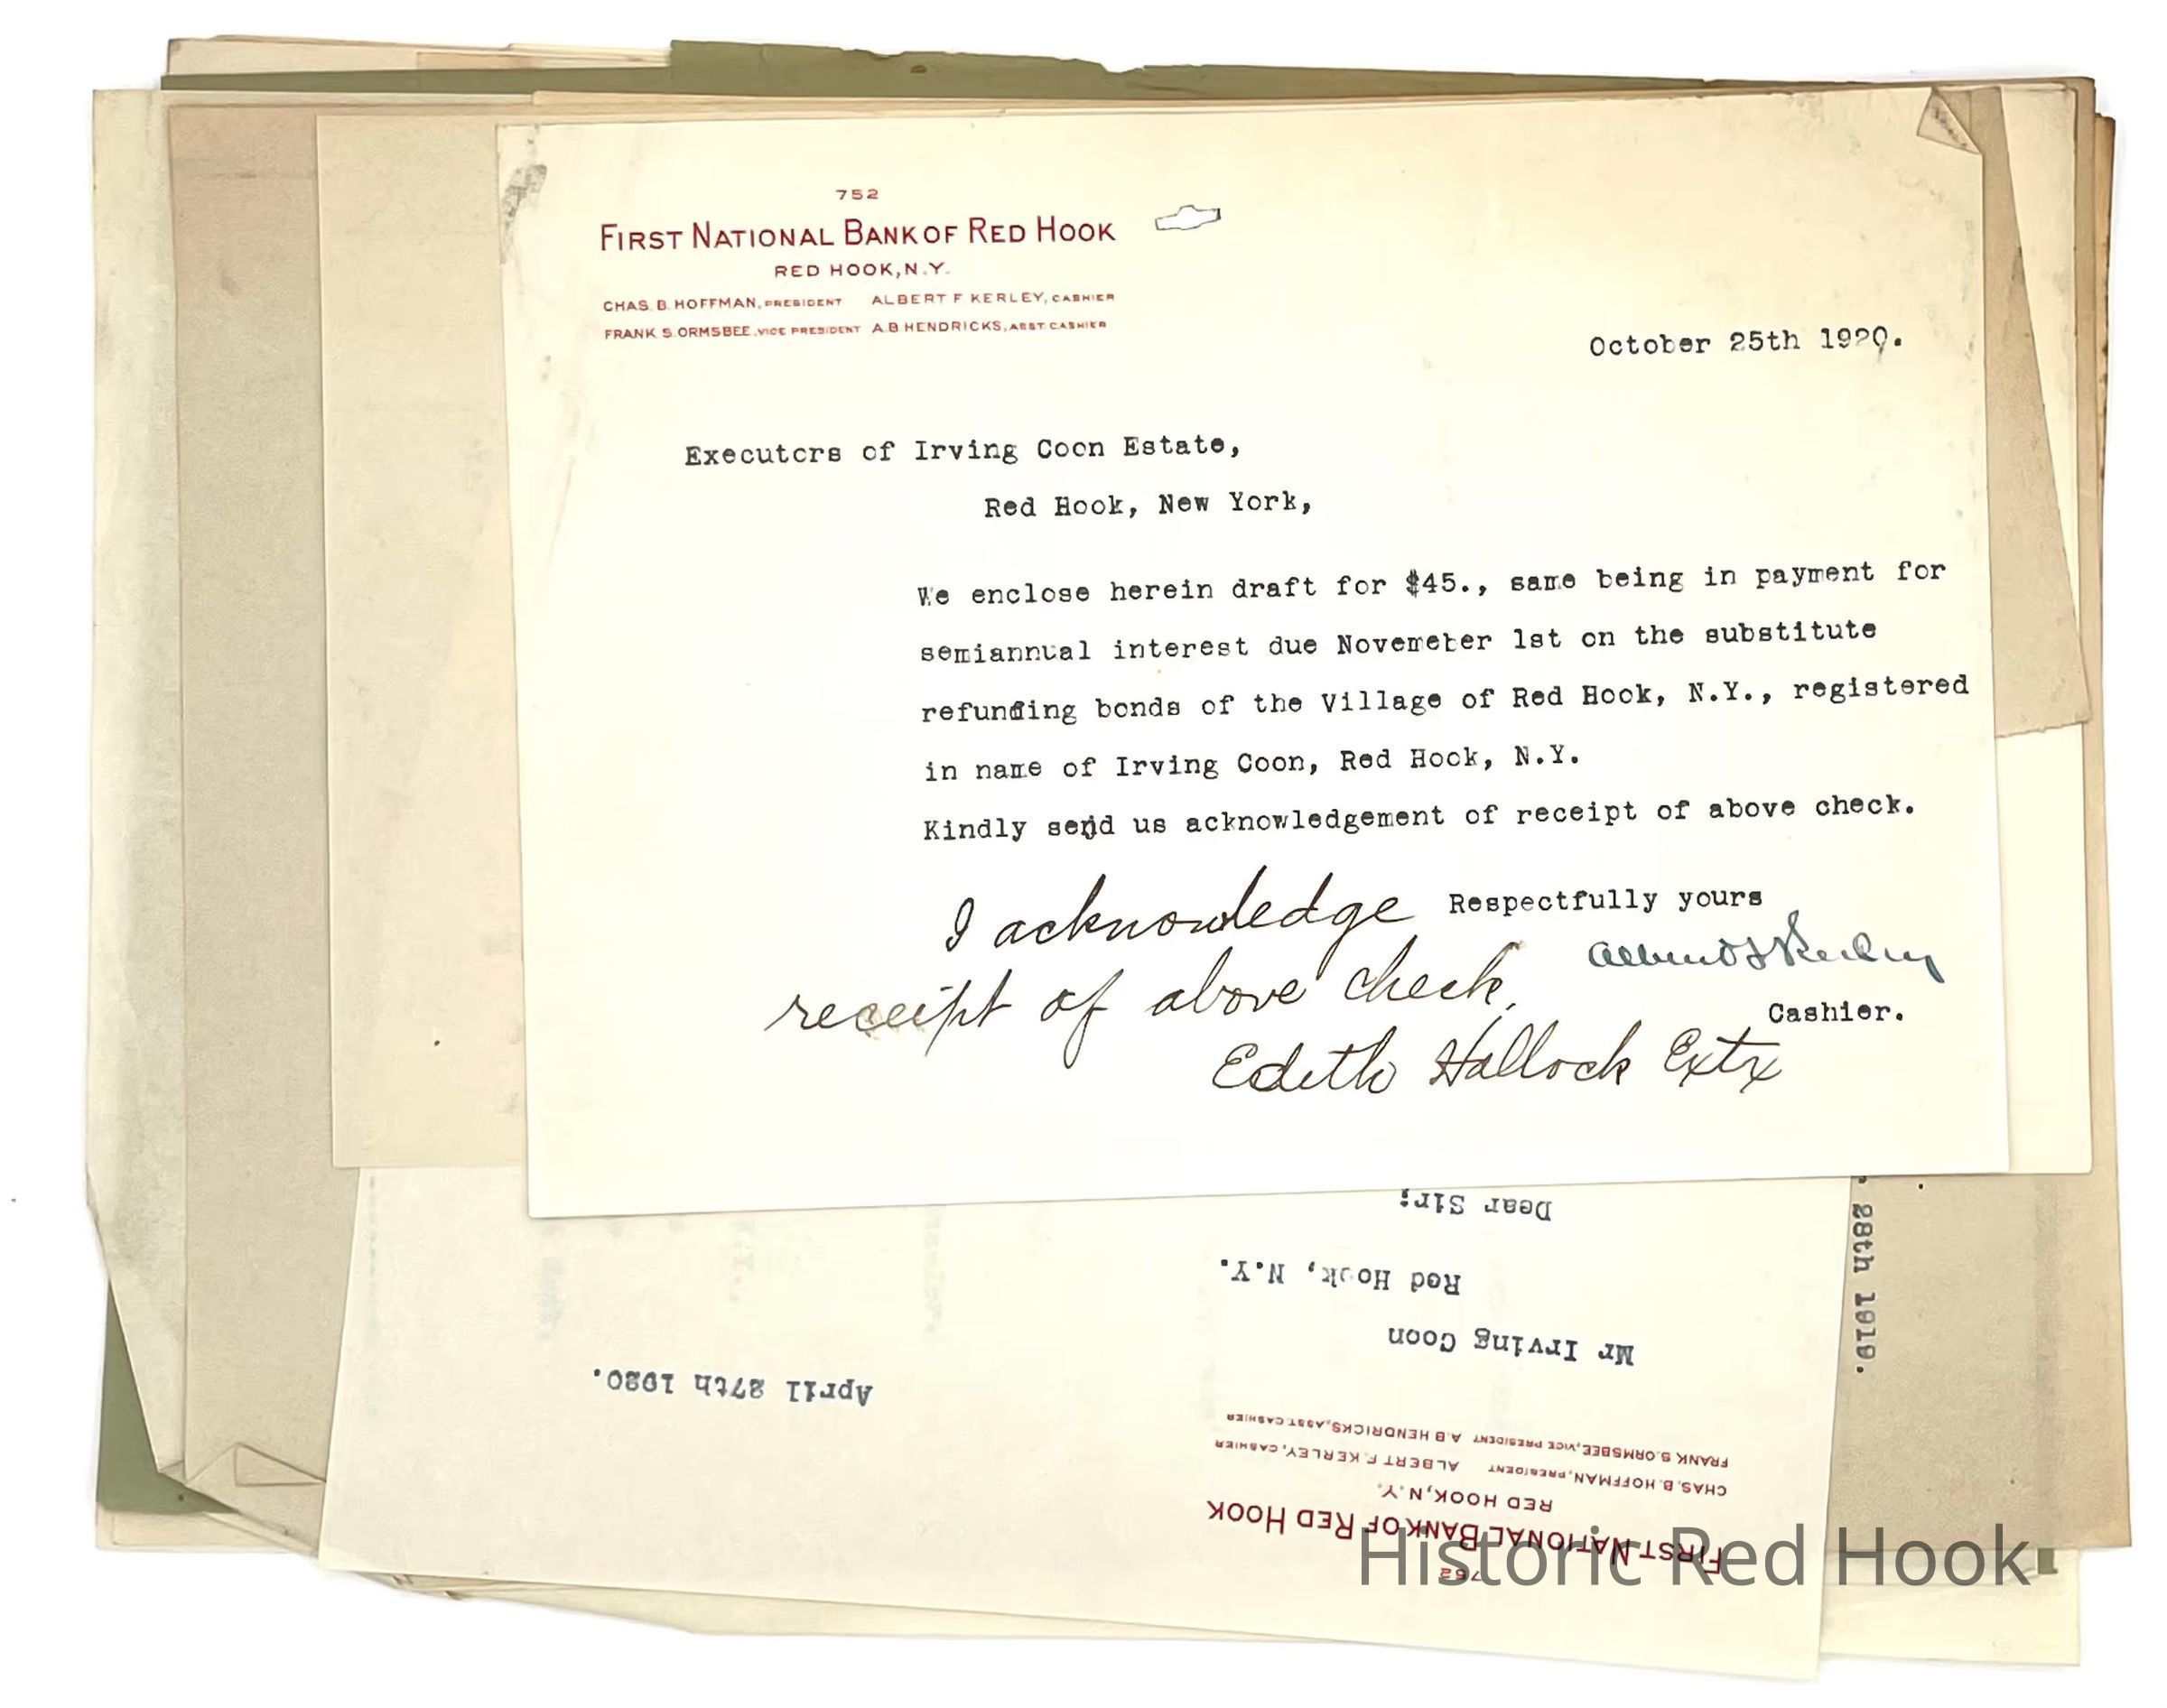 752
FIRST NATIONAL BANK OF RED HOOK
RED HOOK, N.Y.
CHAS. B. HOFFMAN, PRESIDENT ALBERT F. KERLEY, CASHIER
FRANK S. ORMSBEE, VICE PRESIDENT A.B. HENDRICKS, ASST. CASHIER
October 25th 1920.
Executors of Irving Coon Estate,
Red Hook, New York,
We enclose herein draft for $45., same being in payment for
semiannual interest due Novemeber 1st on the substitute
refunding bonds of the Village of Red Hook, N.Y., registered
in name of Irving Coon, Red Hook, N.Y.
Kindly send us acknowledgement of receipt of above check.
Respectfully yours
Albert F Kerley
Cashier.
I acknowledge
receipt of above check.
Edith Hallock Extx
28th 1919.
752
FIRST NATIONAL BANK OF RED HOOK
RED HOOK, N.Y.
CHAS. B. HOFFMAN, PRESIDENT ALBERT F. KERLEY, CASHIER
FRANK S. ORMSBEE, VICE PRESIDENT A.B. HENDRICKS, ASST. CASHIER
April 27th 1920.
Mr Irving Coon
Red Hook, N.Y.
Dear Sir;
Historic Red Hook